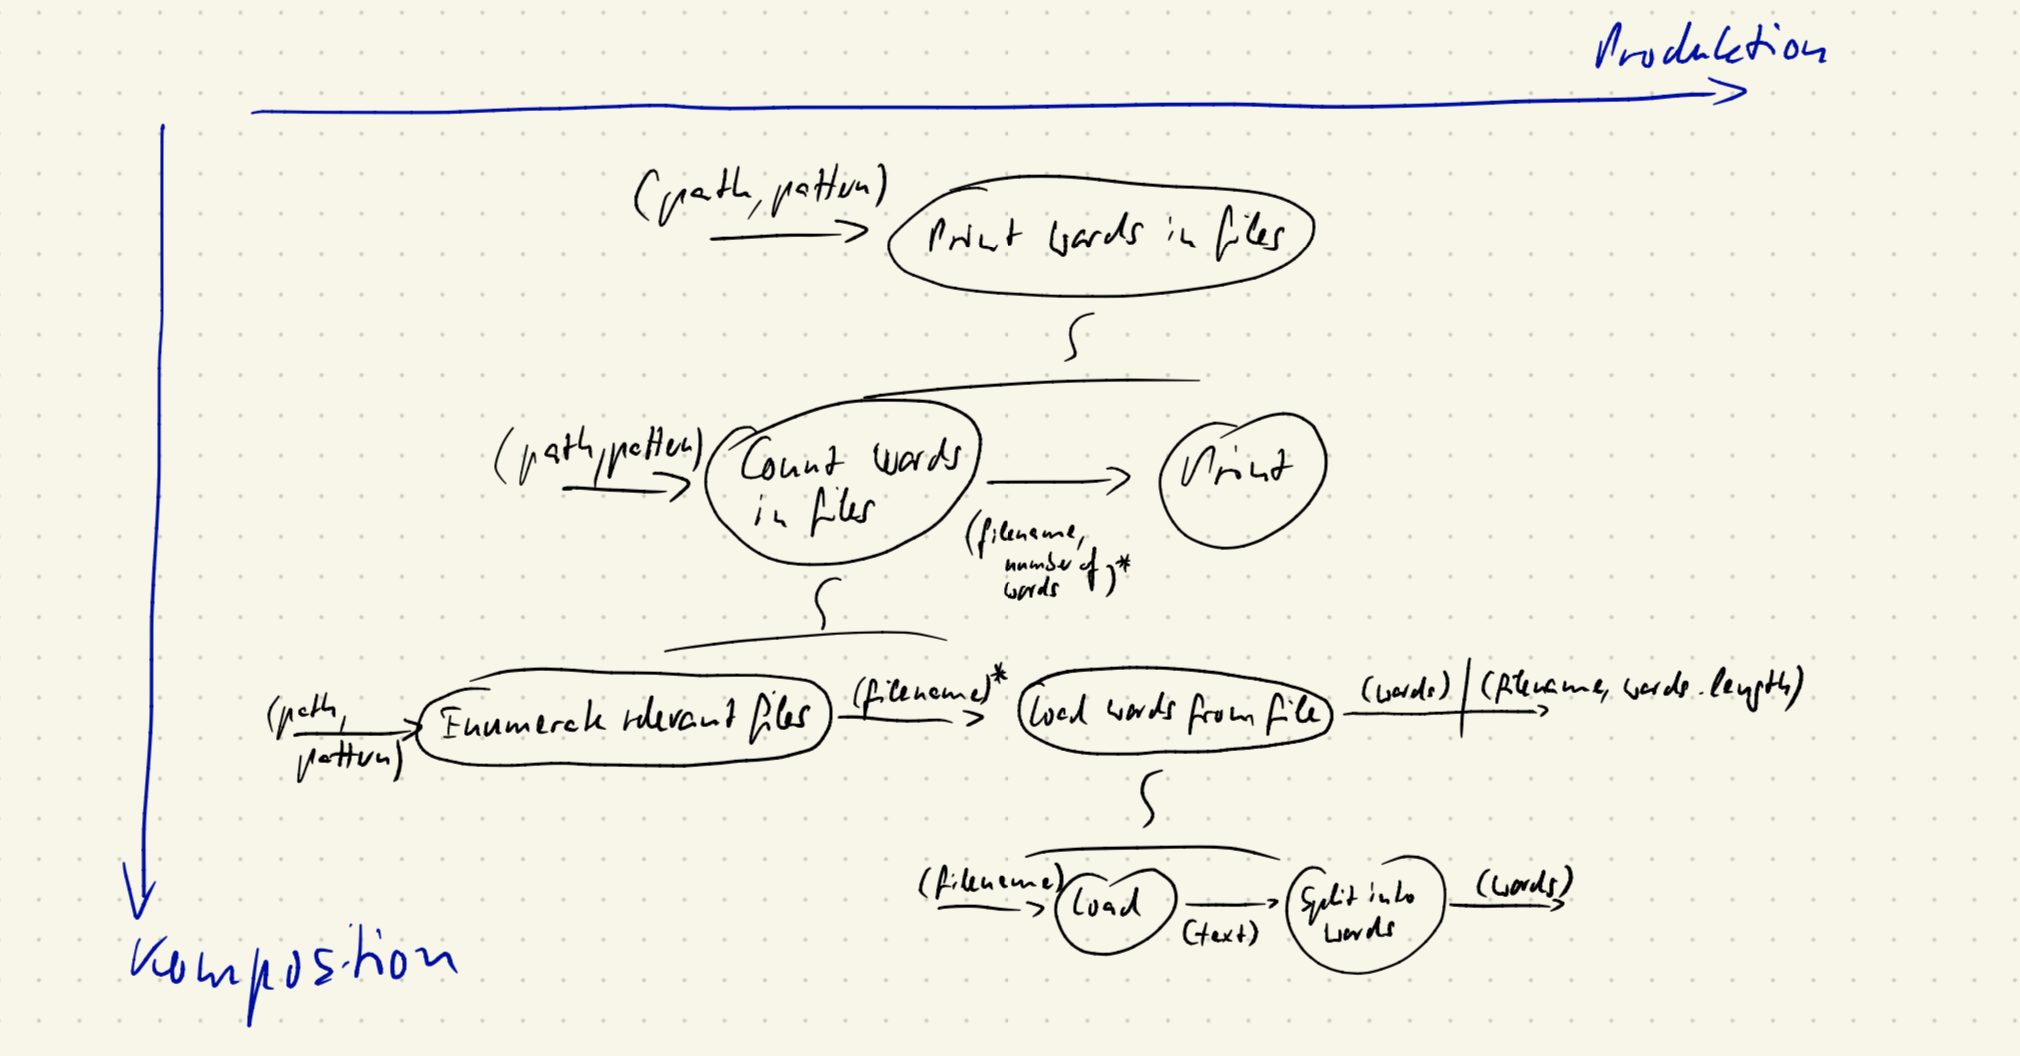 Produktion
(path, pattern)
Print words in files
(path, pattern)
Count words
in files
Print
(filename,
number of
words )*
(path,
pattern)
Enumerate relevant files
(filename)*
Load words from file
(words) | (filename, words.length)
(filename)
Load
(text)
Split into
words
(words)
Komposition